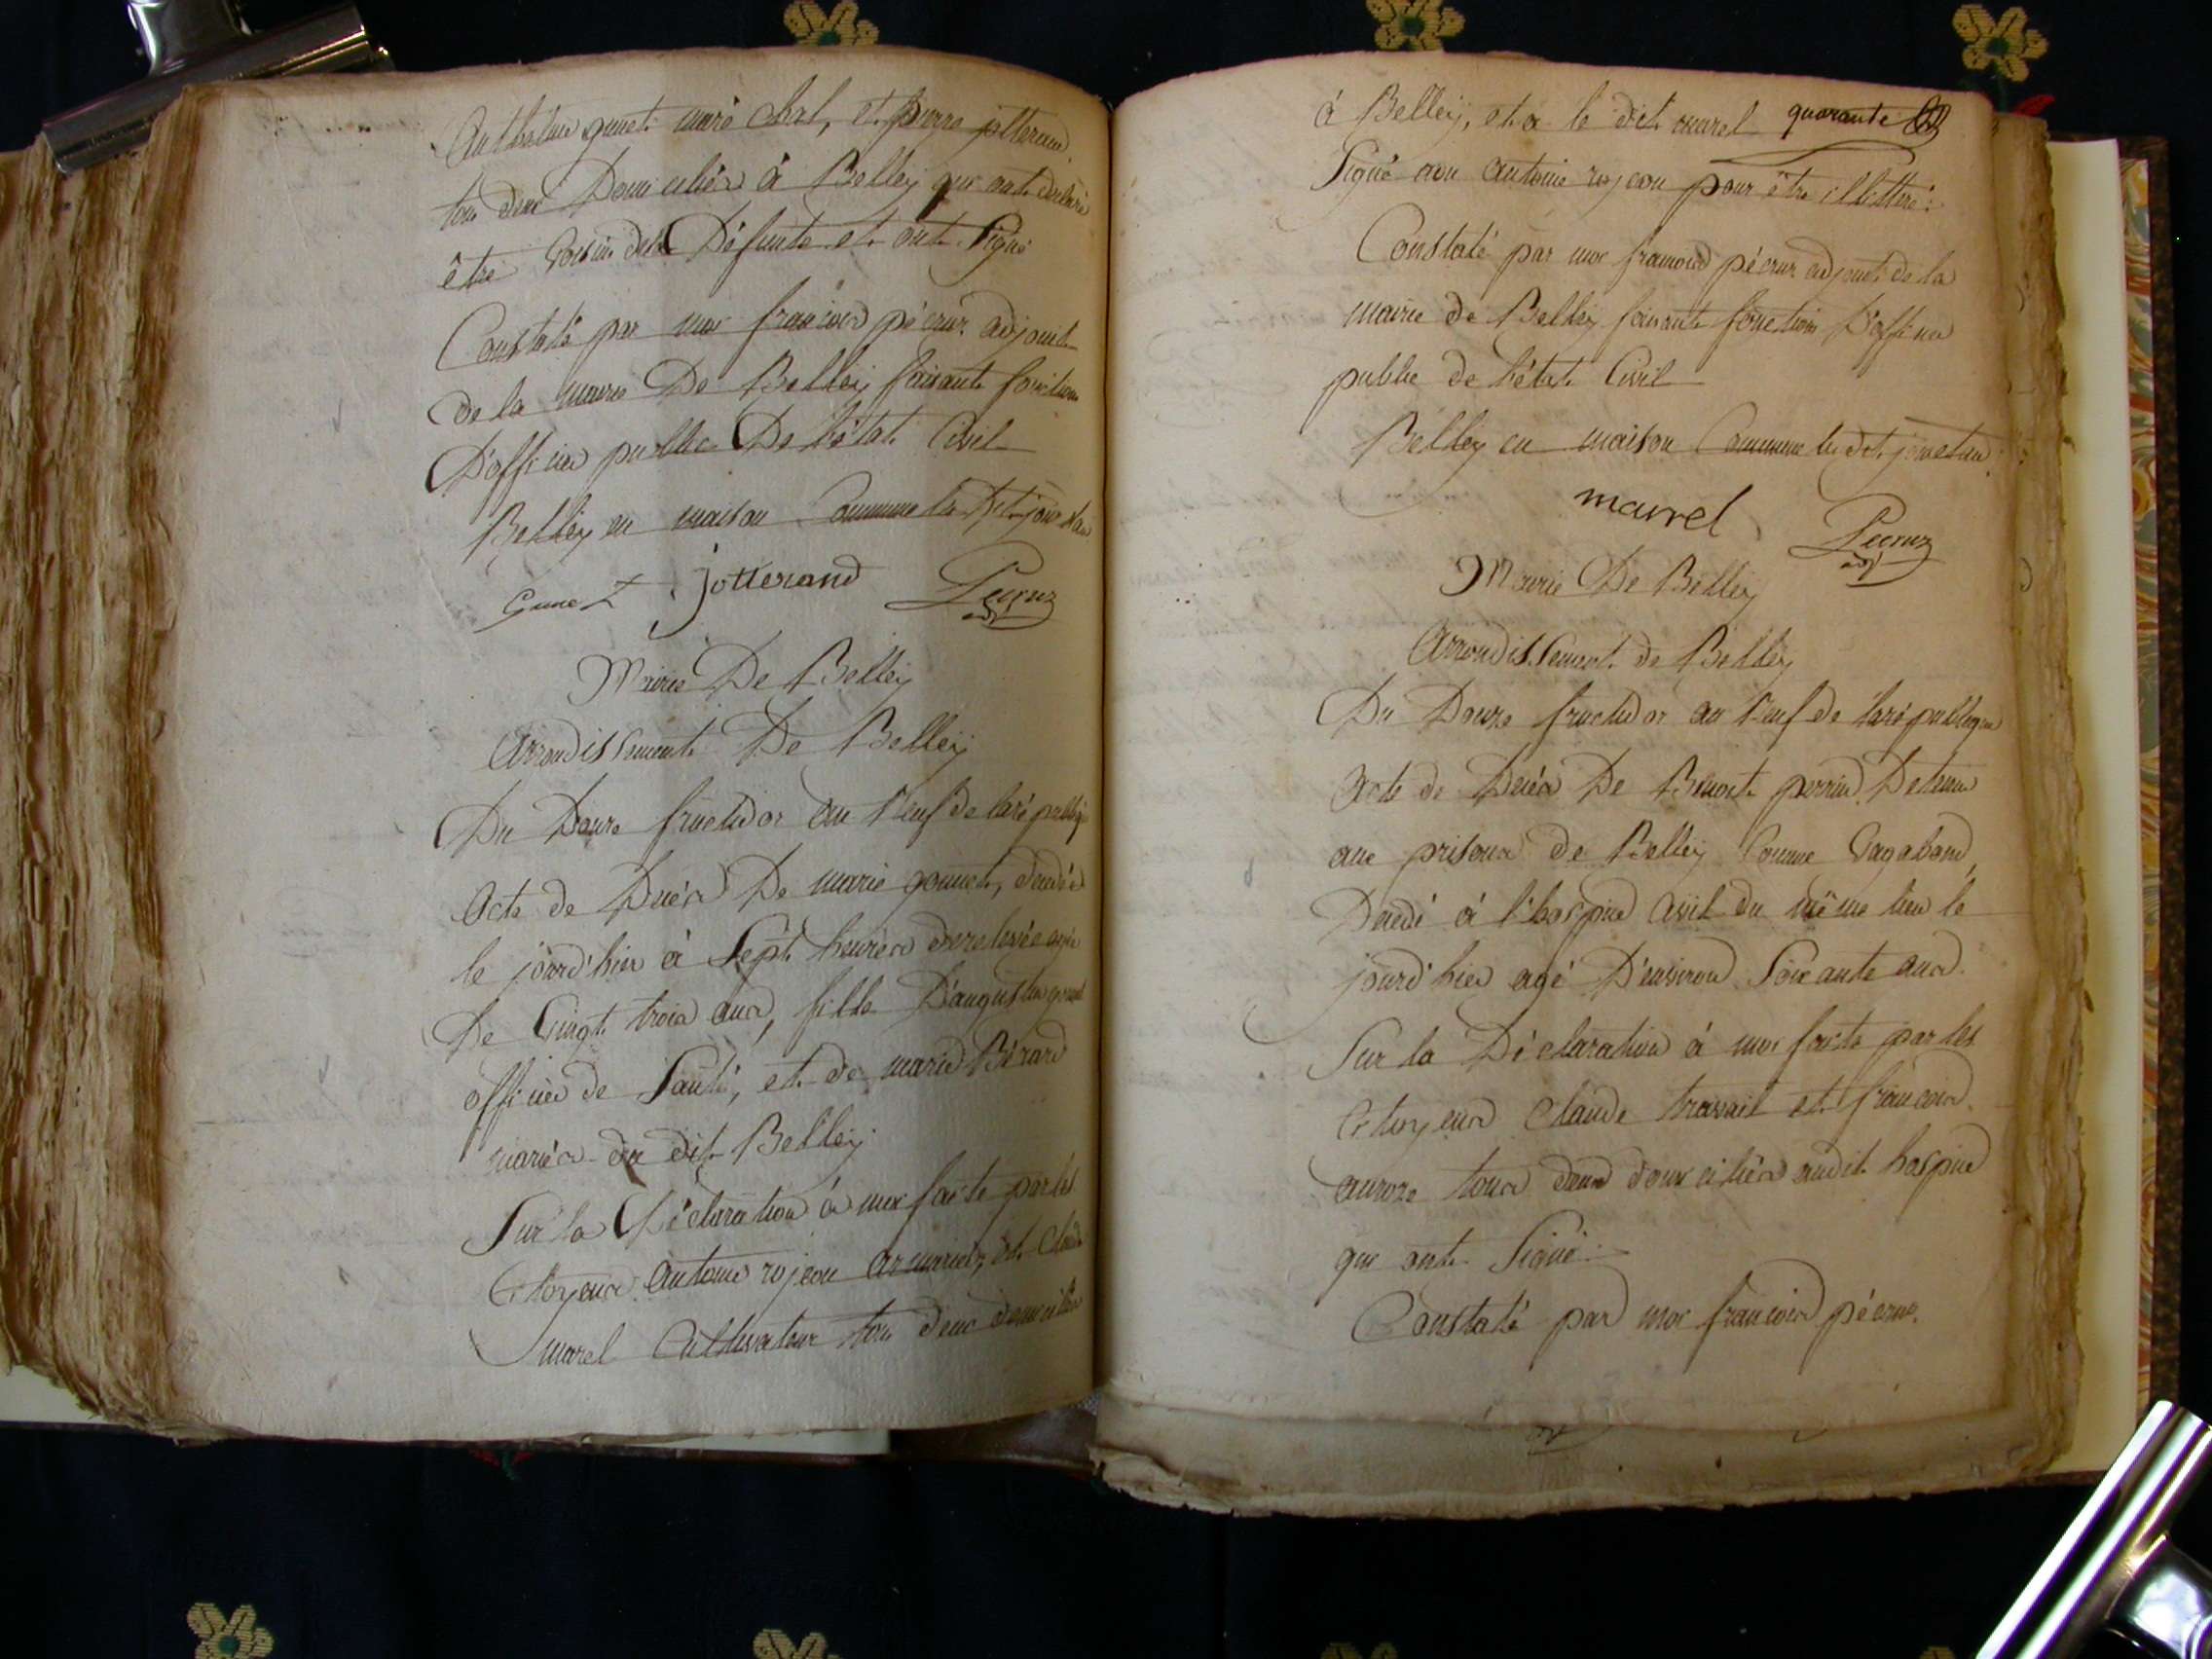 Anthelme gunet maré chal, et pierre jotterand
tou deux Domiciliés à Belley qui ont déclaré
être Voisin dela Défunte et ont Signé
Constaté par moi francois pécruz adjoint
de la mairie De Belley faisant fonction
D'officier public De l'état Civil
Belley en maison Commune les Dit jour et an
Gunet jotterand Pecruz
adjt
Mairie De Belley
Arrondissement De Belley
Du Douze fructidor an Neuf de la république
Acte de Décés De marie gonnet, décedée
le jourd'hier à Sept heures de relevée agée
De Vingt trois ans, fille D'augustin gonnet
officier de Santé, et de marie Bérard
mariés du dit Belley
Sur la Déclaration à moi faite par les
Citoyens Antoine rojeon armurier, et Claude
marel Cultivateur tou deux domiciliés
à Belley, et a le dit marel quarante
Signé non antoine rojeon pour être illittré:
Constaté par moi francois pécruz adjoint de la
mairie de Belley faisant fonction D'officier
public de l'état Civil
Belley en maison Commune les dit jour et an
marrel Pecruz
adjt
Mairie De Belley
Arrondissement de Belley
Du Douze fructidor an Neuf de la république
Acte de Décés De Benoit perrin Detenu
aux prisons de Belley Comme Vagabond,
Décedé à l'hospice Civil du même lieu le
jourd'hier agé D'environ Soixante ans.
Sur la Déclaration à moi faite par les
Citoyens Claude travail et francois
aurore tous deux domiciliés audit hospice
qui ont Signé:
Constaté par moi francois pécruz.